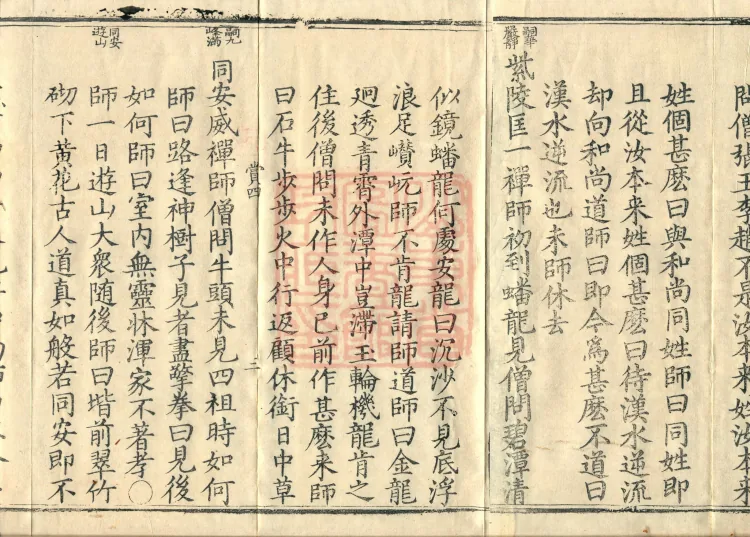 問僧張王李趙不是汝本来姓汝本来
姓個甚麽曰與和尚同姓師曰同姓即
且從汝本来姓個甚麽曰待漢水逆流
却向和尚道師曰即今爲甚麽不道曰
漢水逆流也未師休去
嗣華嚴静
紫陵匡一禪師初到蟠龍見僧問碧潭清
似鏡蟠龍何處安龍曰沉沙不見底浮
浪足巑岏師不肯龍請師道師曰金龍
迥透青霄外潭中豈滯玉輪機龍肯之
住後僧問未作人身已前作甚麽来師
曰石牛步步火中行返顧休銜日中草
賞四
二
嗣九峰滿
同安威禪師僧問牛頭未見四祖時如何
師曰路逢神樹子見者盡擎拳曰見後
如何師曰室内無靈牀渾家不著孝〇
同安遊山
師一日遊山大衆随後師曰堦前翠竹
砌下黄花古人道真如般若同安即不